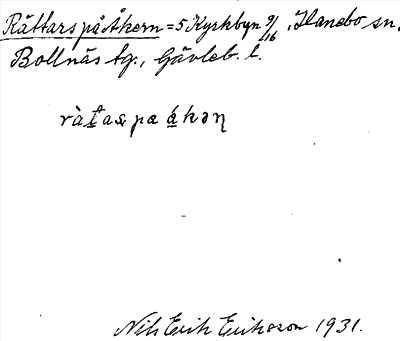 Rättars på Åkern = 5 Kyrkbyn 9/16, Hanebo sn.
Bollnäs tg., Gävleb. l.
ràt̲as pæ á̲kəɳ
Nils Erik Eriksson 1931.